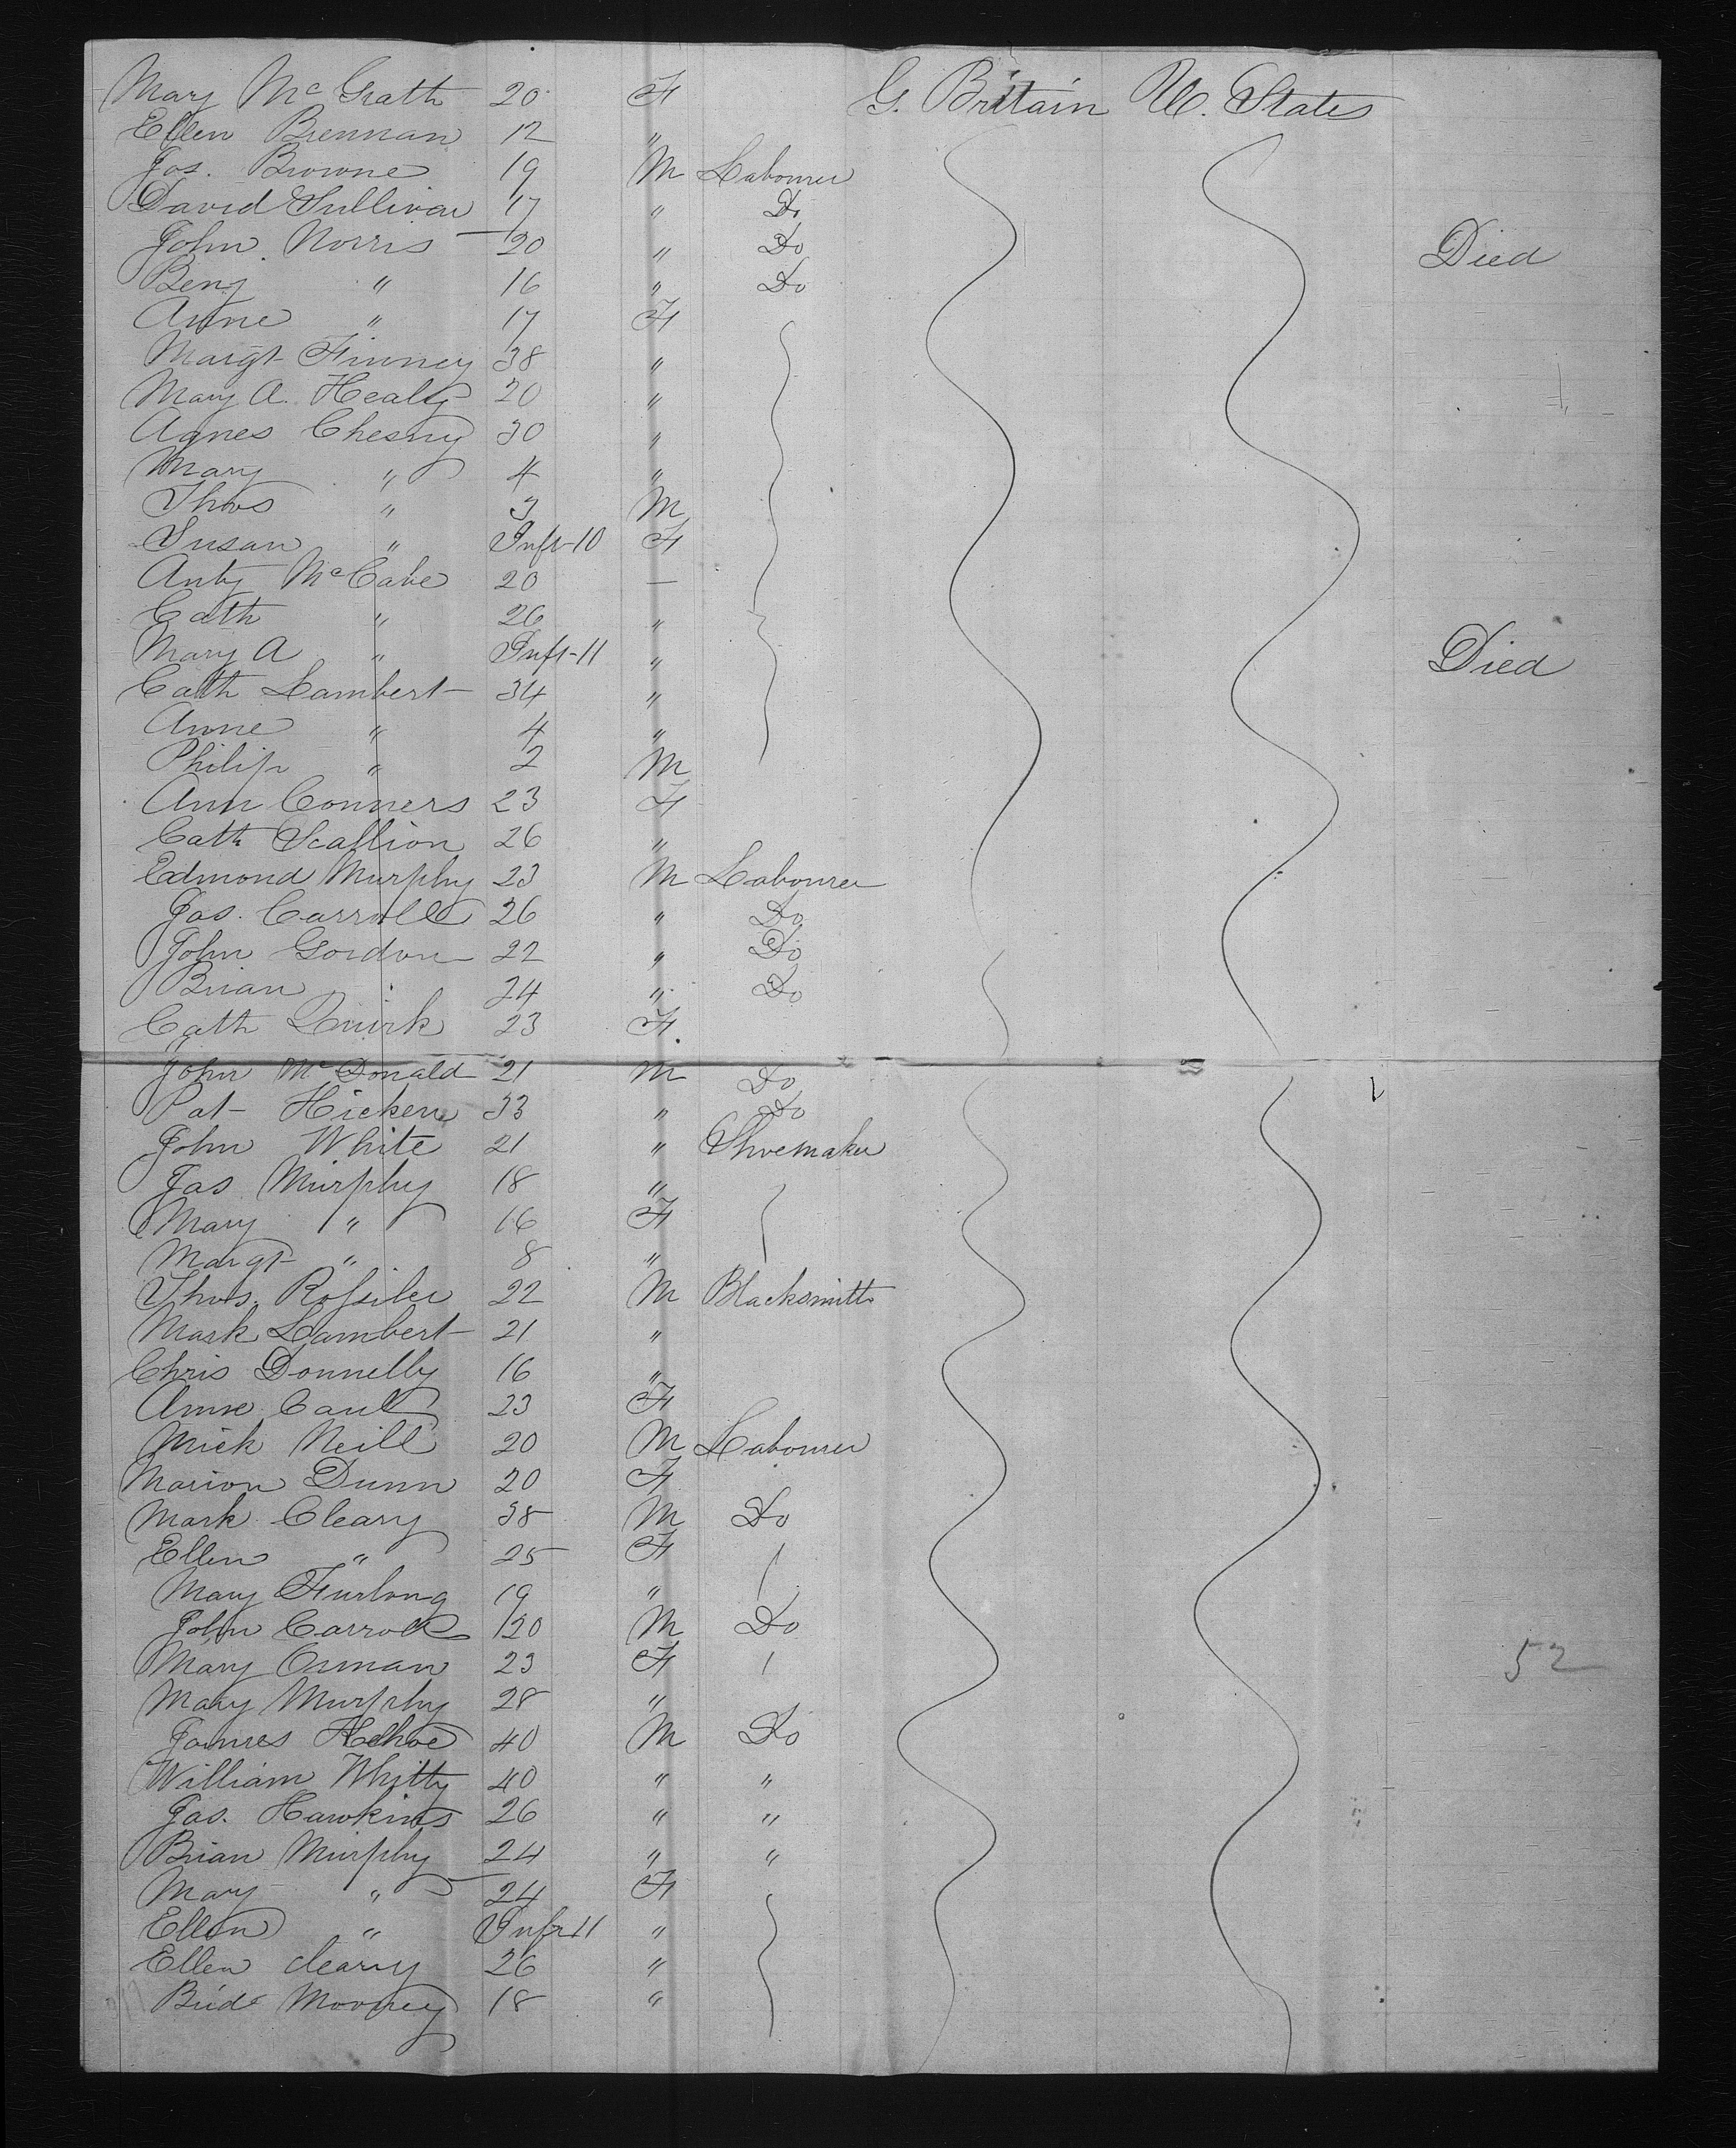 Mary McGrath 20 F G. Britain U. States
Ellen Brennan 12 "
Jas. Browne 19 M Labourer
David Sullivan 17 " Do
John Norris 20 " Do Died
Benj " 16 " Do
Anne " 17 F
Margt Finney 38 "
Mary A. Healy 20 "
Agnes Chesny 30 "
Mary " 4 "
Thos " 3 M
Susan " Inft-10 F
Anty McCabe 20 —
Cath " 26 "
Mary A " Inft-11 " Died
Cath Lambert 34 "
Anne " 4 "
Philip " 2 M
Ann Conners 23 F
Cath Scallion 26 "
Edmond Murphy 23 M Labourer
Jas. Carroll 26 " Do
John Gordon 22 " Do
Brian 24 " Do
Cath Quirk 23 F
John McDonald 21 M Do
Pat Hicken 33 " Do
John White 21 " Shoemaker
Jas Murphy 18 "
Mary " 16 F
Margt " 8 "
Thos. 22 M Blacksmith
Mark Lambert 21 "
Chris Donnelly 16 "
Anne Caul 23 F
Mick Neill 20 M Labourer
Marion Dunn 20 F
Mark Cleary 38 M Do
Ellen " 25 F
Mary Furlong 19 "
John Carroll 20 M Do
Mary 23 F 52
Mary Murphy 28 "
James Kehoe 40 M Do
William Whitty 40 " "
Jas. Hawkins 26 " "
Brian Murphy 24 " "
Mary " 24 F
Ellen " Inft-11 "
Ellen Cleary 26 "
Brid Mooney 18 "